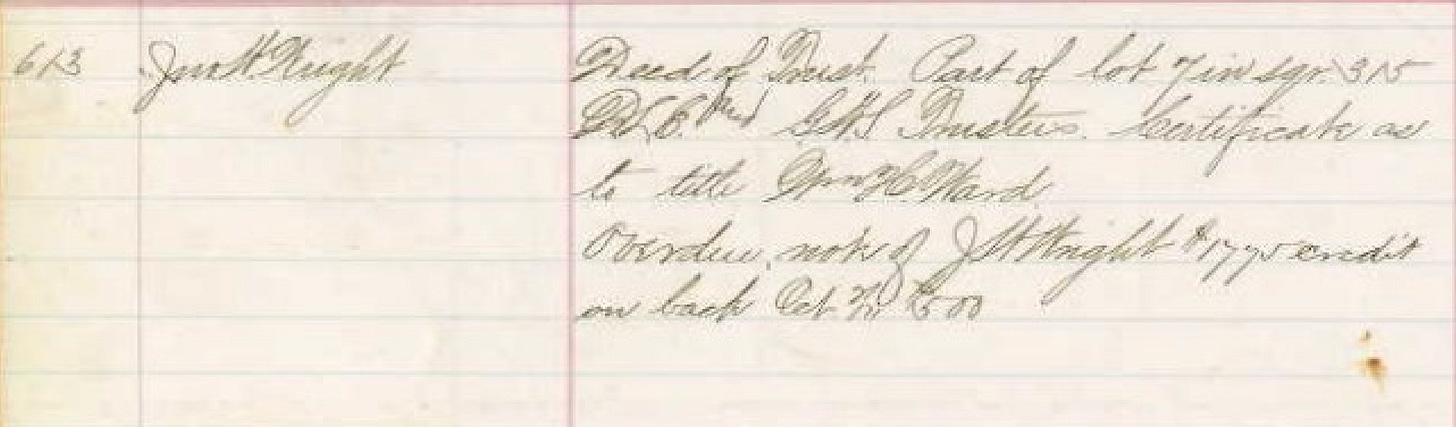 613 Jno H Wright Deed of Trust. Part of lot 7 in sqr 315
G & S Trustees. Certificate as
to title Wm H Ward.
Overdue note of J H Wright $1775 credit
on back Oct $500